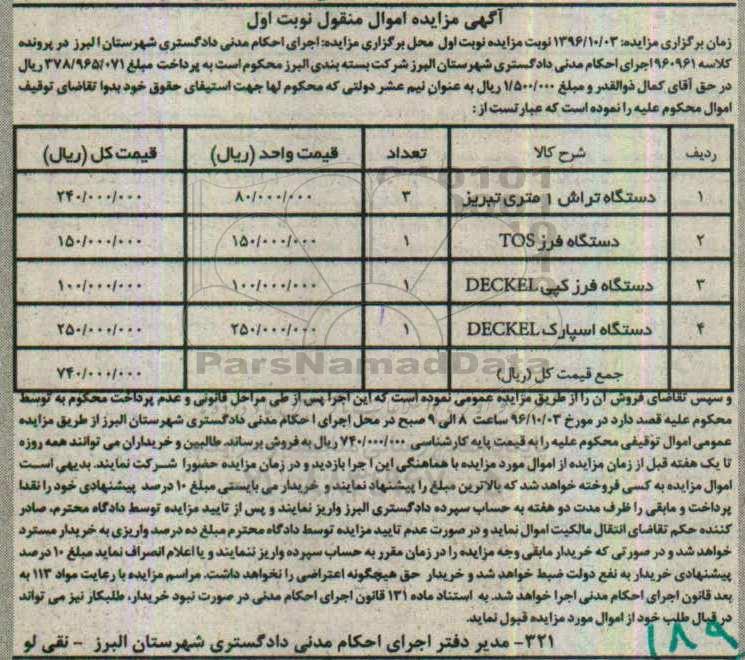 آگهی مزایده اموال منقول نوبت اول
زمان برگزاری مزایده: ۱۳۹۶/۱۰/۰۳ نوبت مزایده نوبت اول محل برگزاری مزایده: اجرای احکام مدنی دادگستری شهرستان البرز در پرونده
کلاسه ۹۶۰۹۶۱ اجرای احکام مدنی دادگستری شهرستان البرز شرکت بسته بندی البرز محکوم است به پرداخت مبلغ ۳۷۸/۹۶۵/۰۷۱ ریال
در حق آقای کمال ذوالقدر و مبلغ ۱/۵۰۰/۰۰۰ ریال به عنوان نیم عشر دولتی که محکوم لها جهت استیفای حقوق خود بدوا تقاضای توقیف
اموال محکوم علیه را نموده است که عبارتست از:
ردیف شرح کالا تعداد قیمت واحد (ریال) قیمت کل (ریال)
۱ دستگاه تراش ۱ متری تبریز ۳ ۸۰/۰۰۰/۰۰۰ ۲۴۰/۰۰۰/۰۰۰
۲ دستگاه فرز TOS ۱ ۱۵۰/۰۰۰/۰۰۰ ۱۵۰/۰۰۰/۰۰۰
۳ دستگاه فرز کپی DECKEL ۱ ۱۰۰/۰۰۰/۰۰۰ ۱۰۰/۰۰۰/۰۰۰
۴ دستگاه اسپارک DECKEL ۱ ۲۵۰/۰۰۰/۰۰۰ ۲۵۰/۰۰۰/۰۰۰
جمع قیمت کل (ریال) ۷۴۰/۰۰۰/۰۰۰
ParsNamadData
و سپس تقاضای فروش آن را از طریق مزایده عمومی نموده است که این اجرا پس از طی مراحل قانونی و عدم پرداخت محکوم به توسط
محکوم علیه قصد دارد در مورخ ۹۶/۱۰/۰۳ ساعت ۸ الی ۹ صبح در محل اجرای احکام مدنی دادگستری شهرستان البرز از طریق مزایده
عمومی اموال توقیفی محکوم علیه را به قیمت پایه کارشناسی ۷۴۰/۰۰۰/۰۰۰ ریال به فروش برساند. طالبین و خریداران می توانند همه روزه
تا یک هفته قبل از زمان مزایده از اموال مورد مزایده با هماهنگی این اجرا بازدید و در زمان مزایده حضورا شرکت نمایند. بدیهی است
اموال مزایده به کسی فروخته خواهد شد که بالاترین مبلغ را پیشنهاد نمایند و خریدار می بایستی مبلغ ۱۰ درصد پیشنهادی خود را نقدا
پرداخت و مابقی را ظرف مدت دو هفته به حساب سپرده دادگستری البرز واریز نمایند و پس از تایید مزایده توسط دادگاه محترم، صادر
کننده حکم تقاضای انتقال مالکیت اموال نماید و در صورت عدم تایید مزایده توسط دادگاه محترم مبلغ ده درصد واریزی به خریدار مسترد
خواهد شد و در صورتی که خریدار مابقی وجه مزایده را در زمان مقرر به حساب سپرده واریز ننمایند و یا اعلام انصراف نماید مبلغ ۱۰ درصد
پیشنهادی خریدار به نفع دولت ضبط خواهد شد و خریدار حق هیچگونه اعتراضی را نخواهد داشت. مراسم مزایده با رعایت مواد ۱۱۳ به
بعد قانون اجرای احکام مدنی اجرا خواهد شد. به استناد ماده ۱۳۱ قانون اجرای احکام مدنی در صورت نبود خریدار، طلبکار نیز می تواند
در قبال طلب خود از اموال مورد مزایده قبول نماید.
۳۲۱- مدیر دفتر اجرای احکام مدنی دادگستری شهرستان البرز - نقی لو
۱۸۹